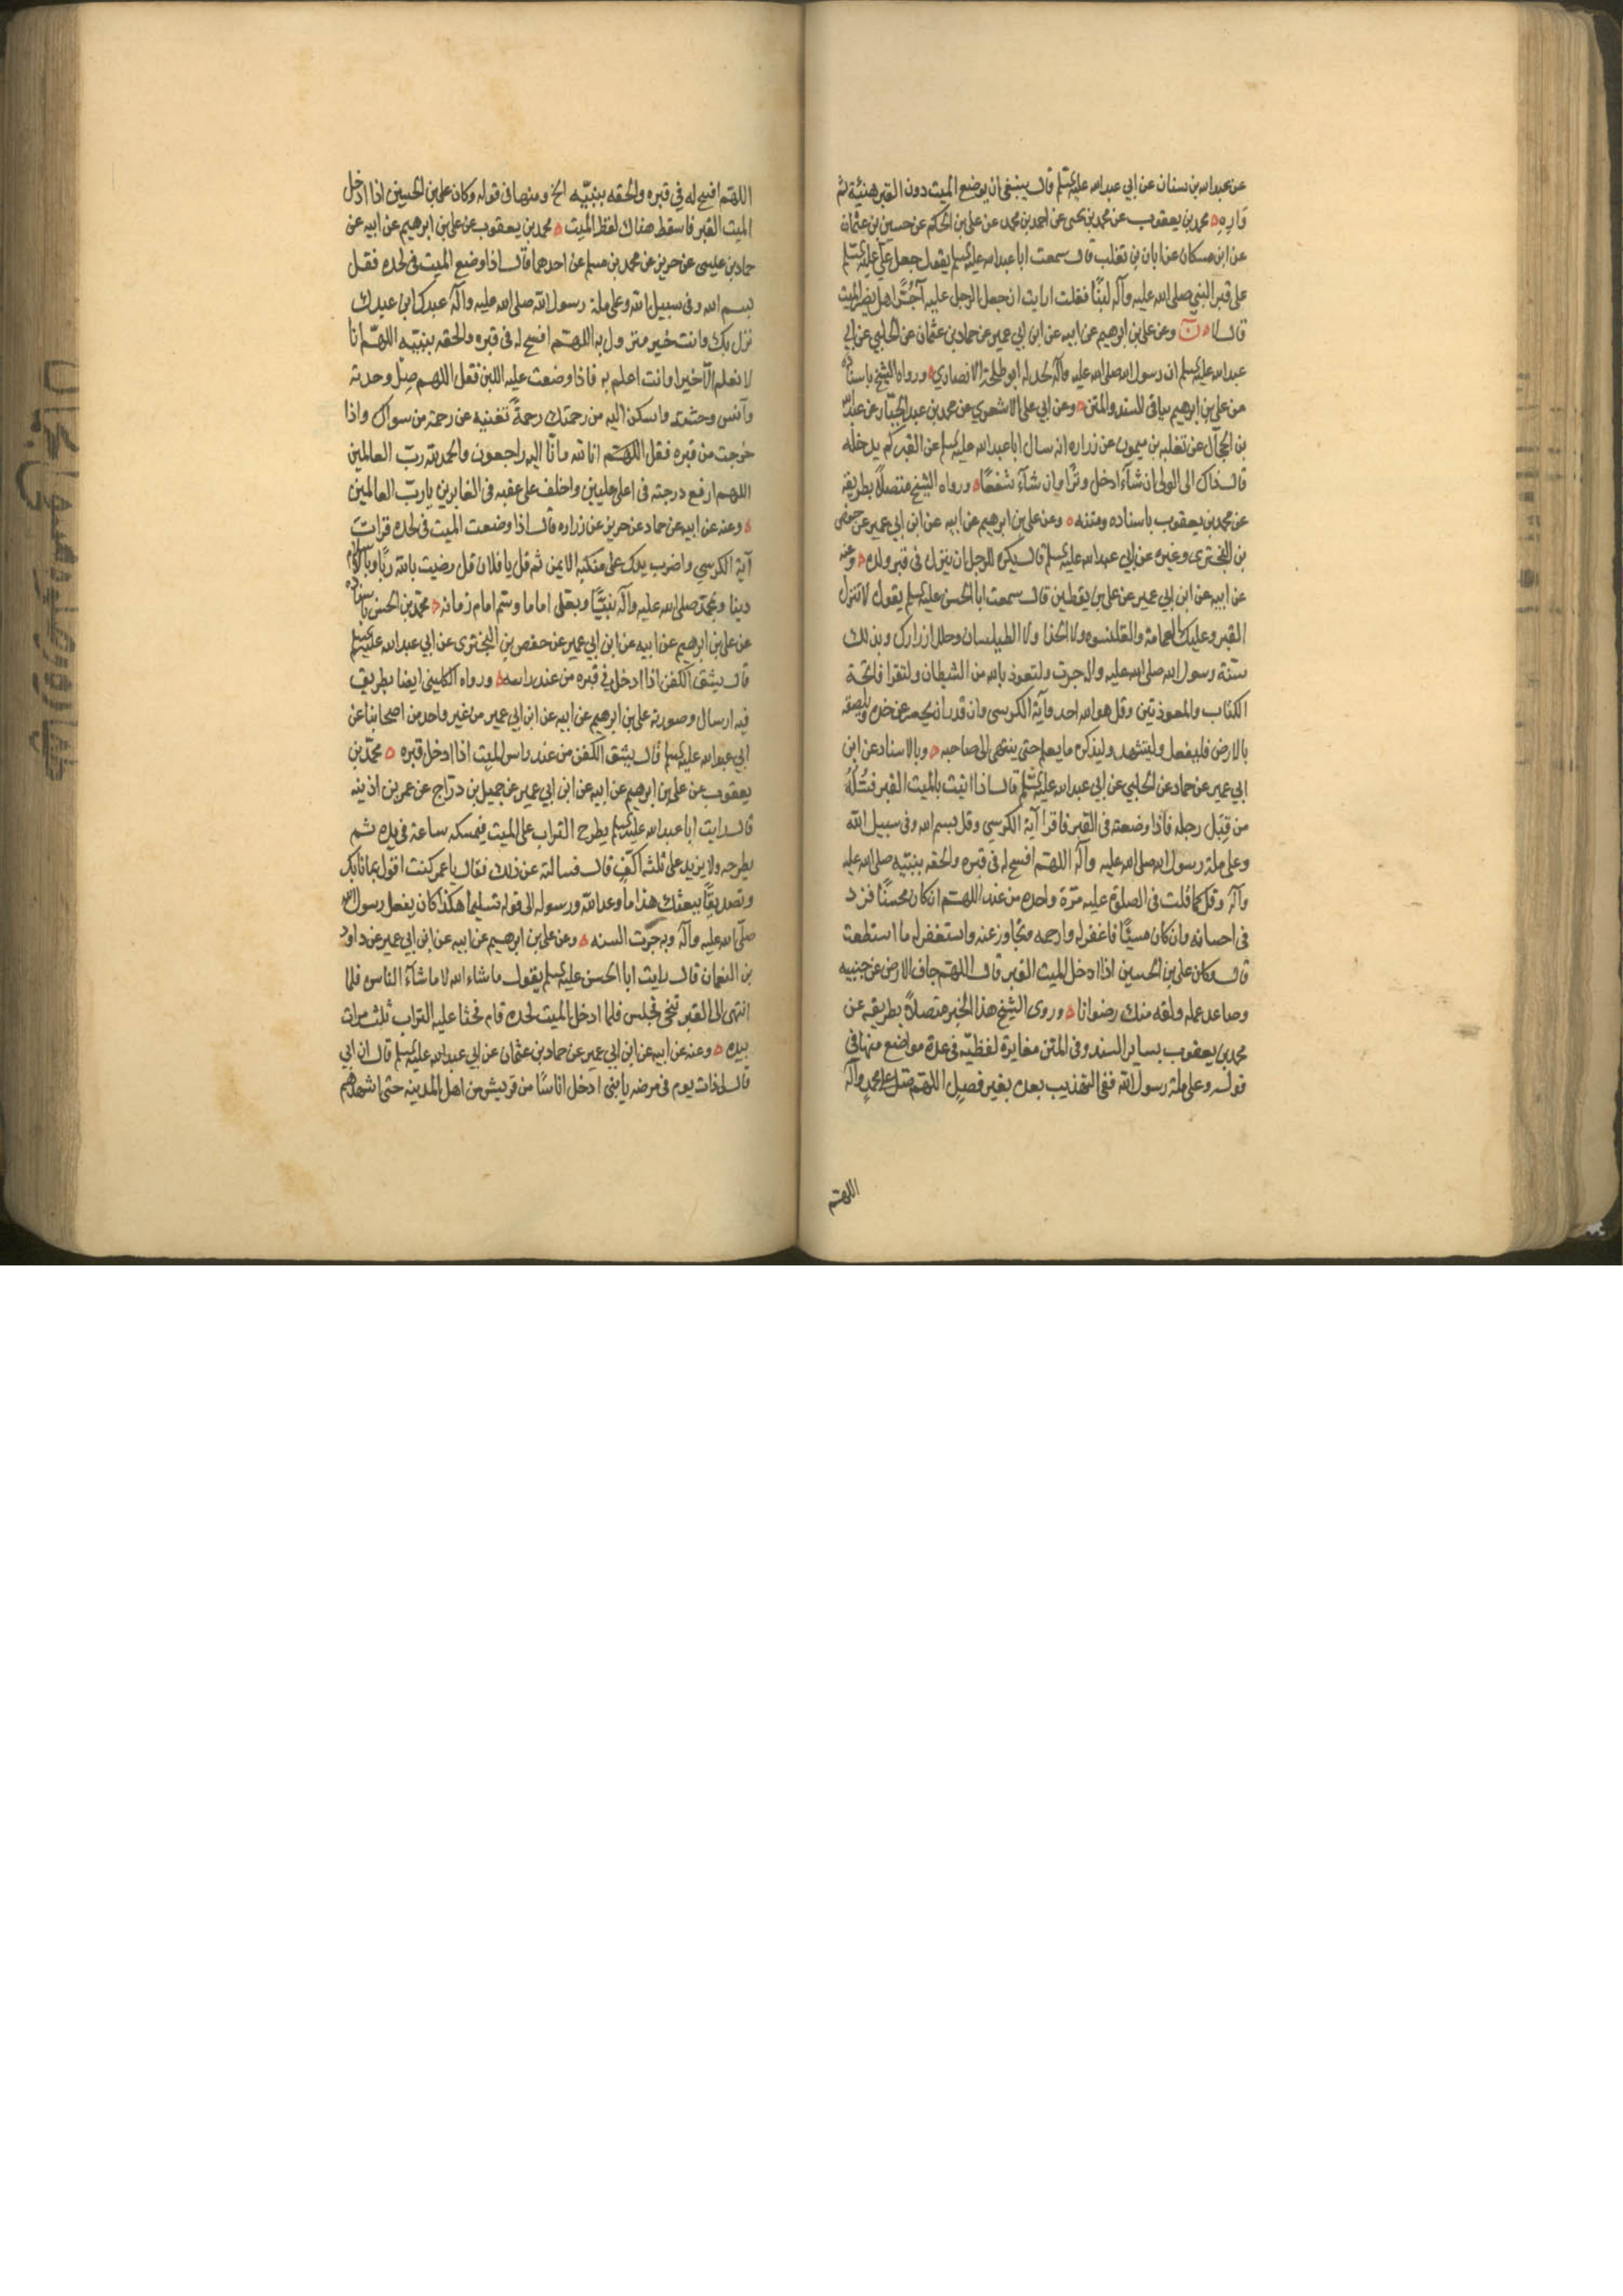 عن عبد الله بن سنان عن ابي عبد الله عليه السلم قال ينبغي ان يوضع الميت دون القبر هنيئة ثم
واره محمد بن يعقوب عن محمد بن يحيى عن احمد بن محمد عن علي بن الحكم عن حسين بن عثمان
عن ابن مسكان عن ابان بن تغلب قال سمعت ابا عبد الله عليه السلم يقول جعل علي عليه السلم
على قبر النبي صلى الله عليه وآله لبنًا فقلت ارايت ان جعل الرجل عليه آجرًّا هل يضر الميت
قال لا ن وعن علي بن ابرهيم عن ابيه عن ابن ابي عمير عن حماد بن عثمان عن الحلبي عن ابي
عبد الله عليه السلم ان رسول الله صلى الله عليه وآله لحد له ابو طلحة الانصاري ورواه الشيخ باسناده
عن علي بن ابرهيم بباقي السند والمتن وعن ابي علي الاشعري عن محمد بن عبد الجبّار عن عبد الله
بن الحجال عن ثعلبه بن ميمون عن زراره انه سال ابا عبد الله عليه السلم عن القبر كم يدخله
قال ذاك الى الولى ان شآء ادخل وترًا وان شآء شفعًا ورواه الشيخ متصلاً بطريقه
عن محمد بن يعقوب باسناده ومتنه وعن علي بن ابرهيم عن ابيه عن ابن ابي عمير عن حفص
بن البخترى وغيره عن ابي عبد الله عليه السلم قال يكره للرجل ان ينزل فى قبر ولده وعنه
عن ابيه عن ابن ابي عمير عن علي بن يقطين قال سمعت ابا الحسن عليه السلم يقول لا تنزل
القبر وعليك العمامة والقلنسوه ولا الحذا ولا الطيلسان وحلل ازرارك وبذلك
سنّة رسول الله صلى الله عليه وآله جرت ولتعوذ بالله من الشيطان ولتقرا فاتحة
الكتاب والمعوذتين وقل هو الله احد وآية الكرسى وان قدر ان يحسر عن خده ويلصقه
بالارض فليفعل وليتشهد وليذكر ما يعلم حتى ينتهى الى صاحبه وبالاسناد عن ابن
ابي عمير عن حماد عن الحلبي عن ابي عبد الله عليه السلم قال اذا اتيت بالميت القبر فسُلّهُ
من قِبَل رجليه فاذا وضعته فى القبر فاقرا آية الكرسي وقل بسم الله وفى سبيل الله
وعلى ملة رسول الله صلى الله عليه وآله اللهم افسح له فى قبره والحقه بنبيّه صلى الله عليه
وآله وقل كما قلت فى الصلوة عليه مرّة واحده من عند اللهم ان كان محسنًا فزد
فى احسانه وان كان مسيئًا فاغفر له وارحمه وتجاوز عنه واستغفر له ما استطعت
قال وكان علي بن الحسين اذا ادخل الميت القبر قال اللهم جاف الارض عن جنبيه
وصاعد عمله ولقه منك رضوانا وروى الشيخ هذا الخبر متصلاً بطريقه عن
محمد بن يعقوب بساير السند وفى المتن مغايرة لفظيّه فى عدة مواضع منها فى
قوله وعلى ملة رسول الله ففى التهذيب بعده بغير فصل اللهم صل على محمد وآله
اللهم
اللهم افسح له في قبره والحقه بنبيّه الخ ومنها فى قوله وكان علي بن الحسين اذا ادخل
الميت القبر فاسقط هناك لفظ الميت محمد بن يعقوب عن علي بن ابرهيم عن ابيه عن
حماد بن عليسى عن حريز عن محمد بن مسلم عن احدهما قال اذا وضع الميت فى لحده فقل
بسم الله وفى سبيل الله وعلى ملة رسول الله صلى الله عليه وآله عبدك ابن عبدك
نزل بك وانت خير منزول به اللهم افسح له فى قبره والحقه بنبيّه اللهم انا
لا نعلم الا خيرا وانت اعلم به فاذا وضعت عليه اللبن فقل اللهم صِلْ وحدته
وآنس وحشته واسكن اليه من رحمتك رحمةً تغنيه عن رحمة من سواك واذا
خرجت من قبره فقل اللهم انا لله وانّا اليه راجعون والحمد لله ربّ العالمين
اللهم ارفع درجته فى اعلى عليين واخلف على عقبه فى الغابرين يا ربّ العالمين
وعنه عن ابيه عن حماد عن حريز عن زراره قال اذا وضعت الميت فى لحده قرات
آية الكرسي واضرب يدك على منكبه الايمن ثم قل يا فلان قل رضيت بالله ربًّا وبالاسلام
دينا وبمحمّد صلى الله عليه وآله نبيًّا وبعلى اماما وسمّ امام زمانه محمّد بن الحسن باسناده
عن علي بن ابرهيم عن ابيه عن ابن ابي عمير عن حفص بن البخترى عن ابي عبد الله عليه السلم
قال يشق الكفن اذا ادخل في قبره من عند راسه ورواه الكلينى ايضا بطريق
فيه ارسال وصورته علي بن ابرهيم عن ابيه عن ابن ابي عمير عن غير واحد من اصحابنا عن
ابي عبد الله عليه السلم قال يشق الكفن من عند راس الميت اذا ادخل قبره محمّد بن
يعقوب عن علي بن ابرهيم عن ابيه عن ابن ابي عمير عن جميل بن درّاج عن عمر بن اذينه
قال رايت ابا عبد الله عليه السلم يطرح التراب على الميت فيمسكه ساعة في يده ثم
يطرحه ولا يزيد على ثلثه اكفّ قال فسالته عن ذلك فقال يا عمر كنت اقول ايمانا بك
وتصديقًا ببعثك هذا ما وعد الله ورسوله الى قوله تسليما هكذا كان يفعل رسول الله
صلّى الله عليه وآله وبه جرت السنه وعن علي بن ابرهيم عن ابيه عن ابن ابي عمير عن داود
بن النعمان قال رايت ابا الحسن عليه السلم يقول ما شاء الله لا ما شآء الناس فلما
انتهى الى القبر تنحى فجلس فلما ادخل الميت لحده قام فحثا عليه التراب ثلث مرات
بيده وعنه عن ابيه عن ابن ابي عمير عن حماد بن عثمان عن ابي عبد الله عليه السلم قال ان ابي
قال لى ذات يوم فى مرضه يا بنى ادخل اناسًا من قريش من اهل المدينه حتى اشهدهم